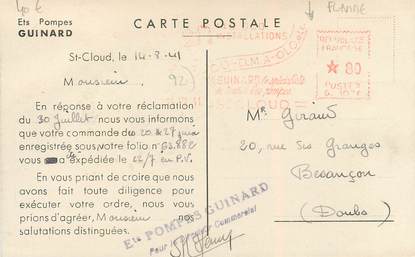 40€
FLAMME
Ets Pompes
GUINARD
CARTE POSTALE
St-Cloud, le 14-8-41
Monsieur,
(92)
En réponse à votre réclamation
du 30 juillet nous vous informons
que votre commande du 20 & 27 juin
enregistrée sous votre folio 62.882
vous a été expédiée le 22/7 en P.V.
En vous priant de croire que nous
avons fait toute diligence pour
exécuter votre ordre, nous vous
prions d'agréer, Monsieur nos
salutations distinguées.
INSTALLATIONS
GUINARD spécialiste
ST CLOUD
FRANÇAISE
★ 80
POSTES
Mr Giraud
20, rue des Granges
Besançon
(Doubs)
Ets POMPES GUINARD
Pour le Directeur Commercial